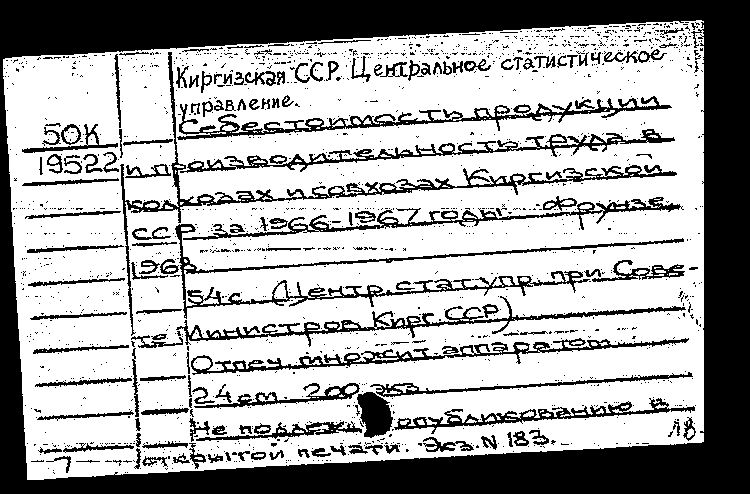 Киргизская ССР. Центральное статистическое
управление.
50К
19522
Себестоимость продукции
и производительность труда в
колхозах и совхозах Киргизской
ССР за 1966-1967 годы. Фрунзе,
1968
54 с. (Центр. стат. упр. при Сове-
те Министров Кирг. ССР)
Отпеч. множит. аппаратом
24 см. 200 экз.
Не подлеж опубликованию в
открытой печати. Экз. N 183.
18
7